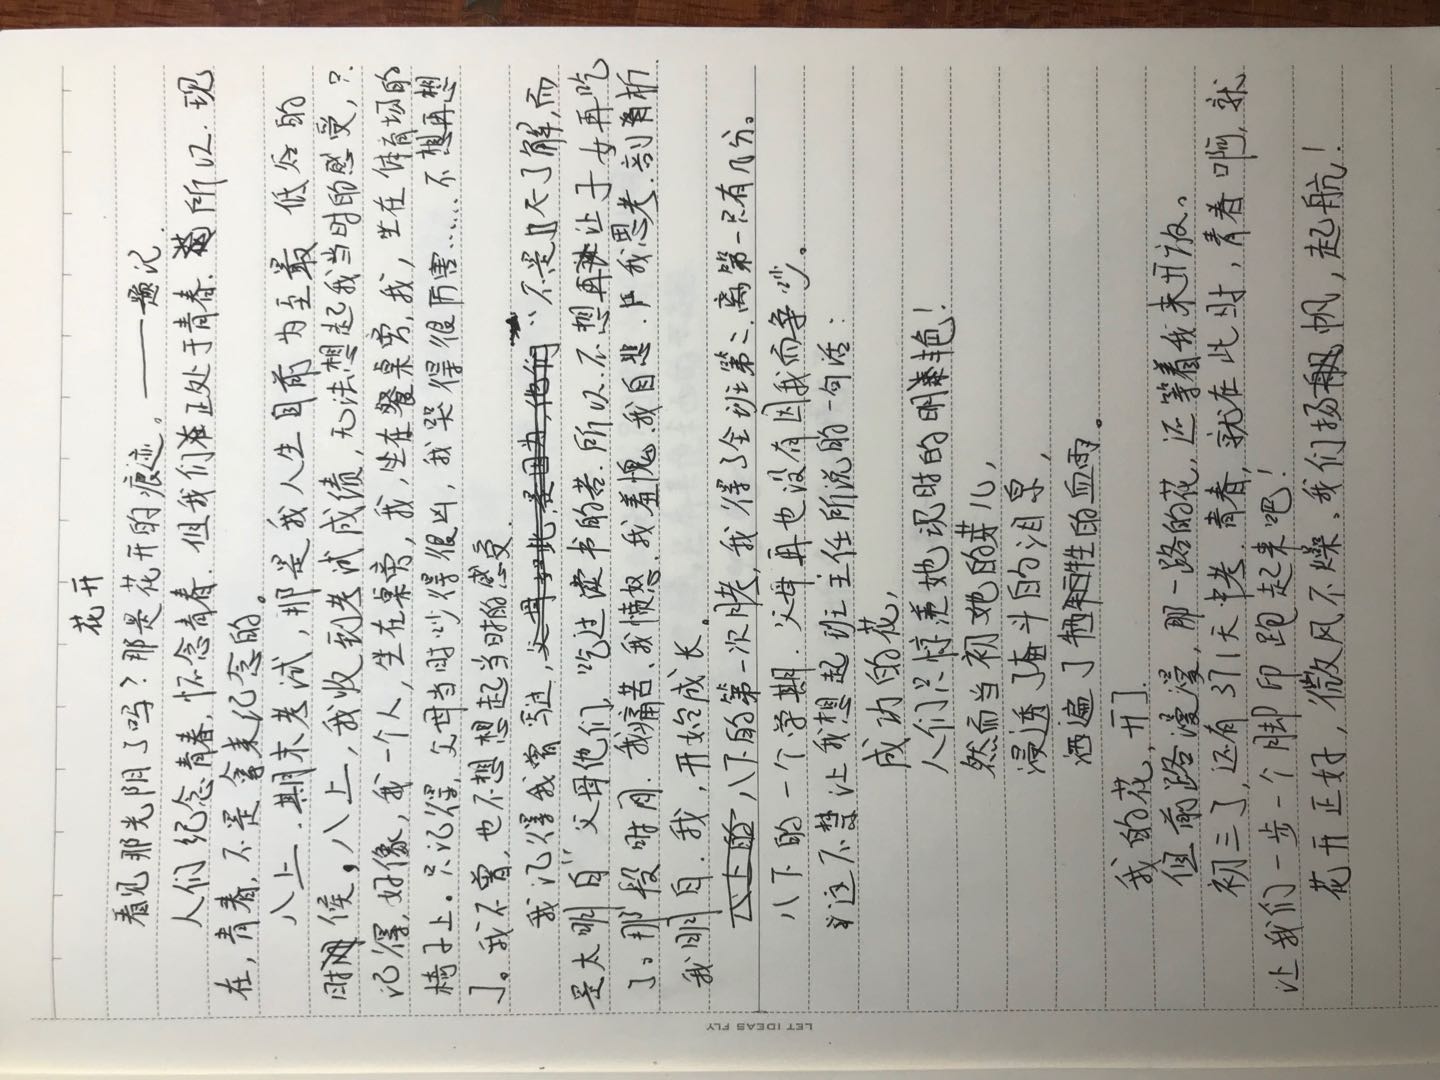 花开
看见那光阴了吗？那是花开的痕迹。——题记.
人们纪念青春,怀念青春.但我们正处于青春.所以.现
在,青春,不是拿来纪念的。
八上.期末考试,那是我人生目前为至最低谷的
时候。八上,我收到考试成绩,无法想起我当时的感受,?.
记得,好像,我一个人,坐在桌旁,我,坐在餐桌旁,我,坐在体育场的
椅子上。只记得,父母当时吵得很凶,我哭得很厉害……不想再想
了。我不曾,也不想想起当时的感受
我记得我曾写过,“不是不了解,而
是太明白”父母他们,吃过读书的苦.所以不想再让子女再吃
了。那段时间.我痛苦、我愤怒、我羞愧、我自悲.我思考.剖析
我明白.我,开始成长。
八下的第一次月考,我得了全班第二.离第一只有几分。
八下的一个学期.父母再也没有因我而争吵。
这不禁让我想起班主任所说的一句话:
成功的花,
人们只惊羡她现时的明艳!
然而当初她的芽儿,
浸透了奋斗的泪泉,
洒遍了牺牲的血雨。
我的花,开了.
但前路漫漫,那一路的花,还等着我来开放。
初三了,还有371天中考.青春,就在此时,青春啊,就
让我们一步一个脚印跑起来吧!
花开正好,微风不燥。我们扬帆,起航!
LET IDEAS FLY